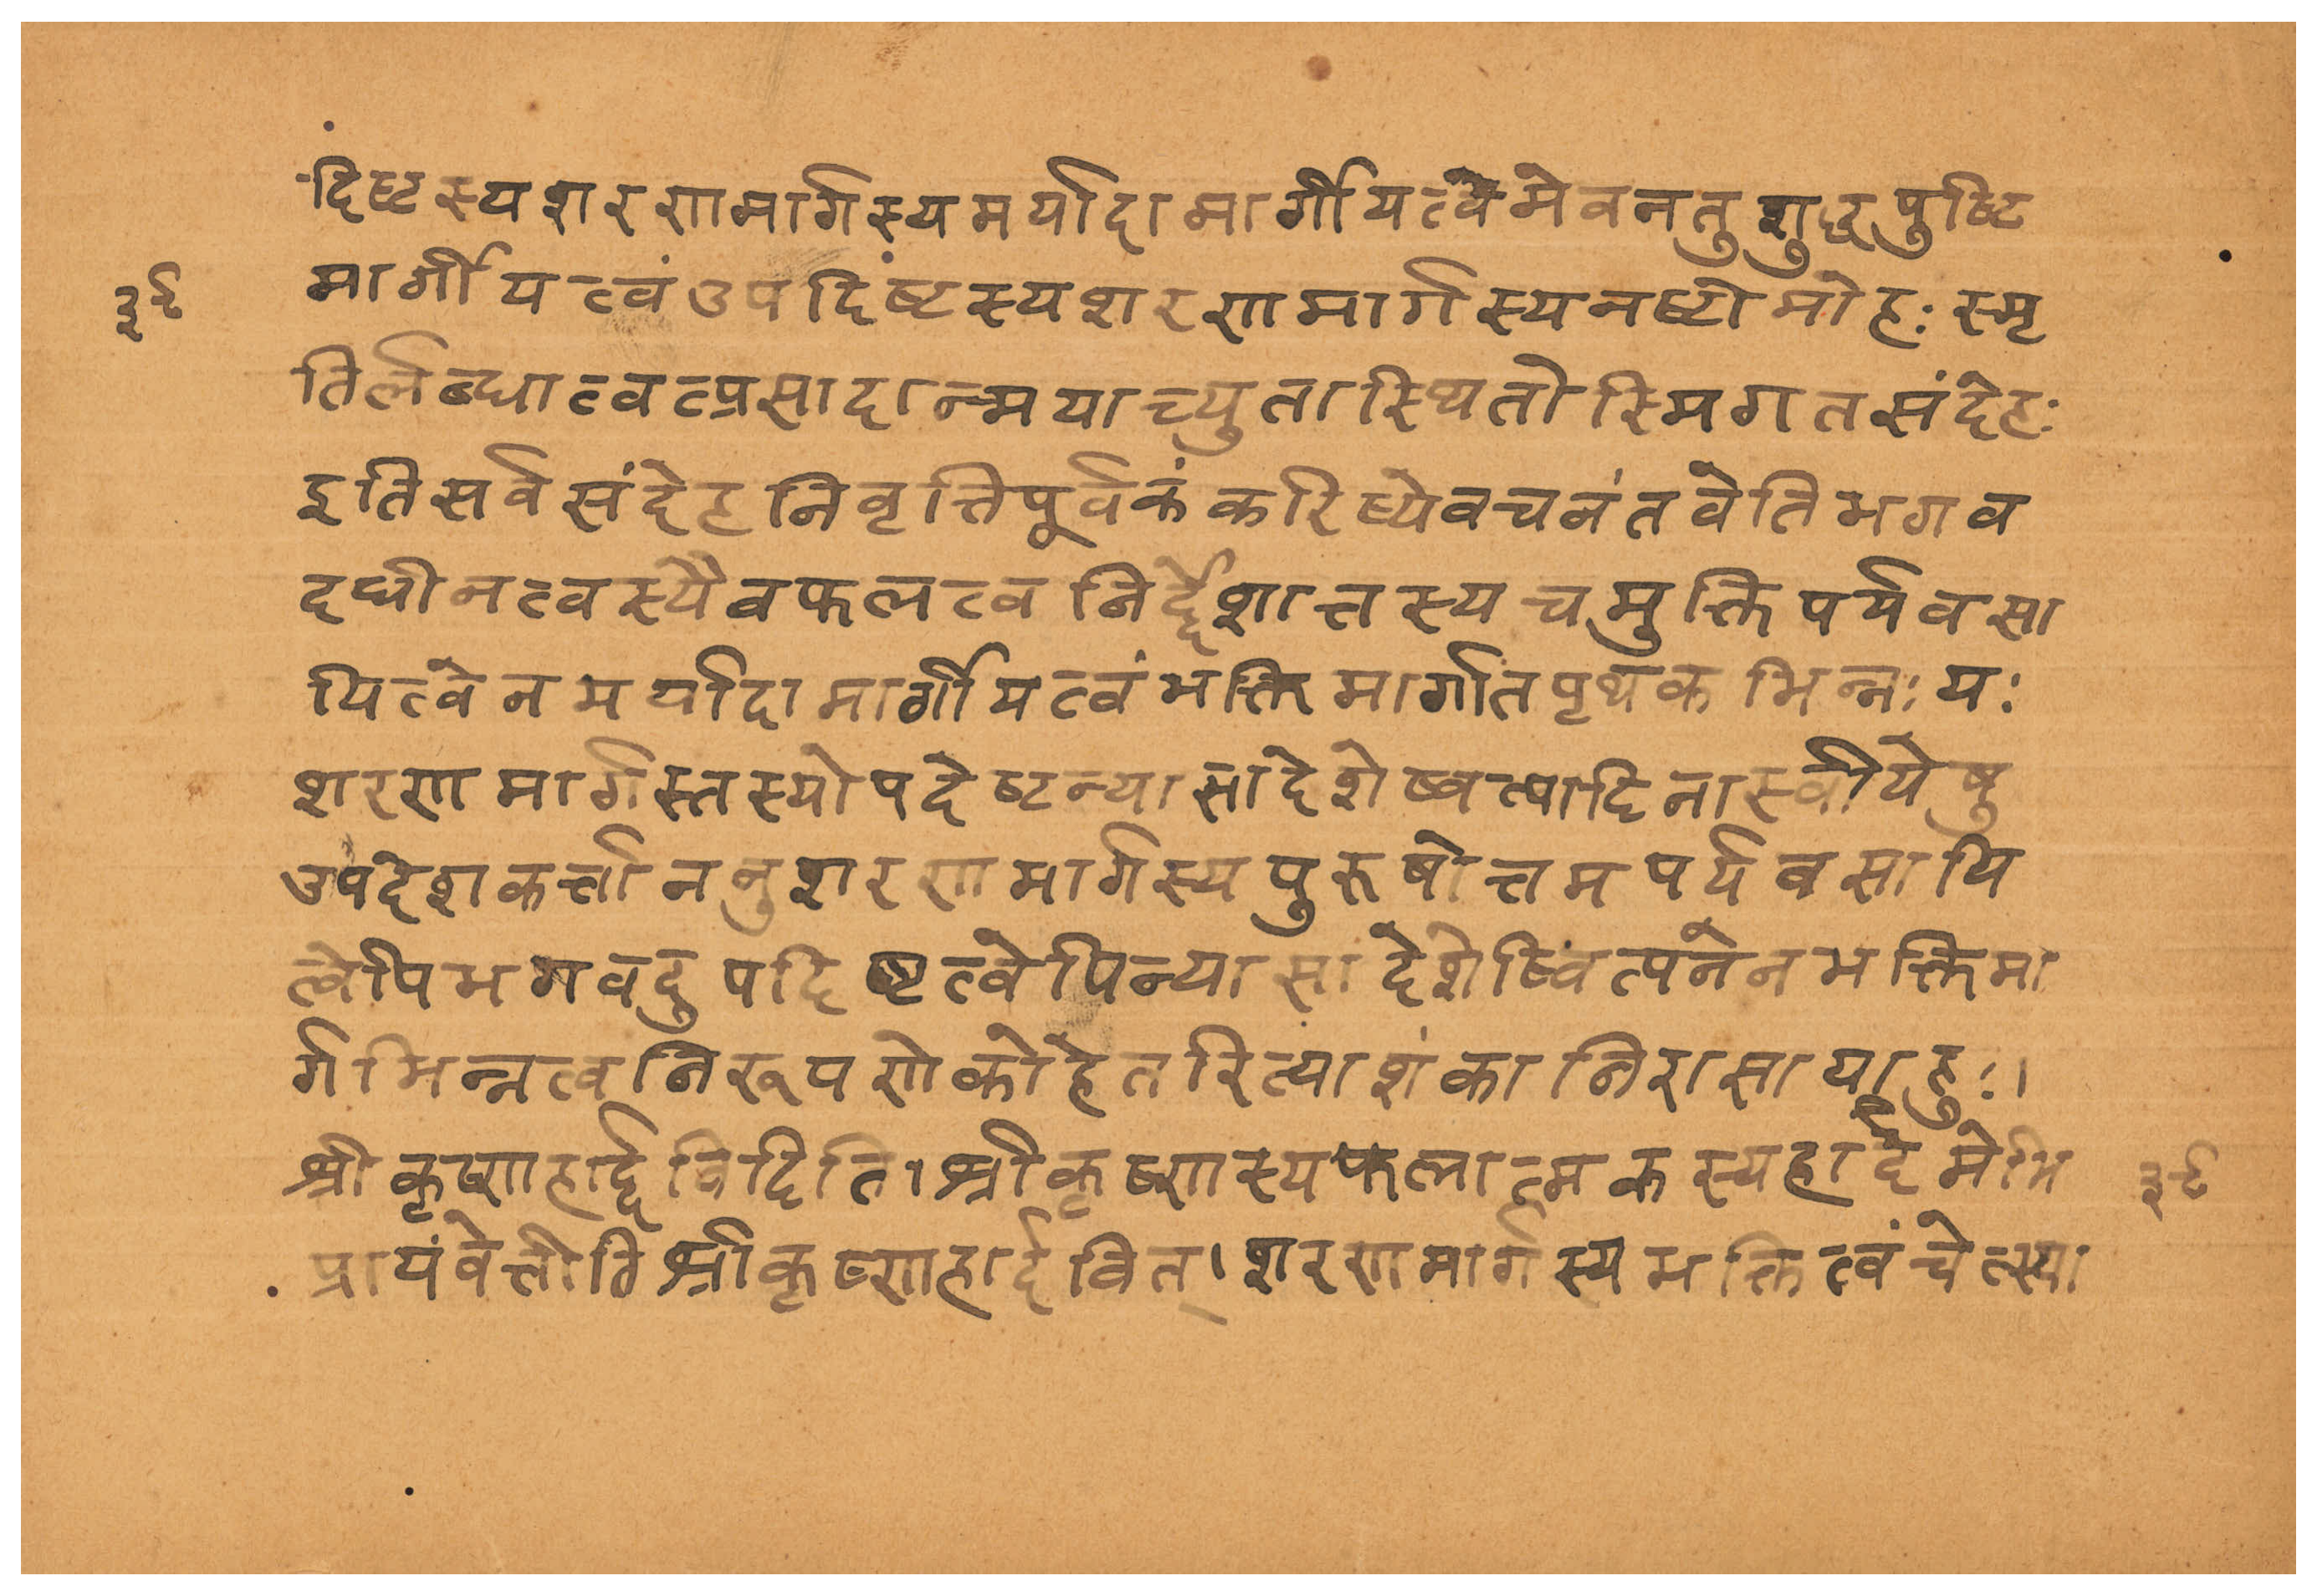 दिष्टस्यशरणमार्गस्यमर्यादामार्गीयत्वमेवनतुशुद्धपुष्टि
३९
मार्गीयत्वंउपदिंष्टस्यशरणमार्गस्यनष्टोमोहःस्मृ
तिर्लब्धात्वत्प्रसादान्मयाच्युतास्थितोस्मिगतसंदेहः
इतिसर्वसंदेहनिवृत्तिपूर्वकंकरिष्येवचनंतवेतिभगव
दधीनत्वस्यैवफलत्वनिर्द्देशात्तस्यचमुक्तिपर्यवसा
यित्वेनमर्यादामार्गीयत्वंभक्तिमार्गातपृथकभिन्नःयः
शरणमार्गस्तस्योपदेष्टन्यासादेशेष्वत्पादिनास्वीयेषु
उपदेशकर्त्ताननुशरणमार्गस्यपुरूषोत्तमपर्यवसायि
त्वेपिभगवदुपदिष्टत्वेपिन्यासादेशेष्विंत्पनेनभक्तिमा
र्गभिन्नत्वनिरूपणेकोहेतरित्याशंकानिरासायाहुः।
श्रीकृष्णहार्द्दविदिति।श्रीकृष्णस्यफलात्मकस्यहार्दमभि
३९
प्रायंवेत्तीतिश्रीकृष्णहार्दवित्।शरणमार्गस्यभक्तित्वंचेत्स्या